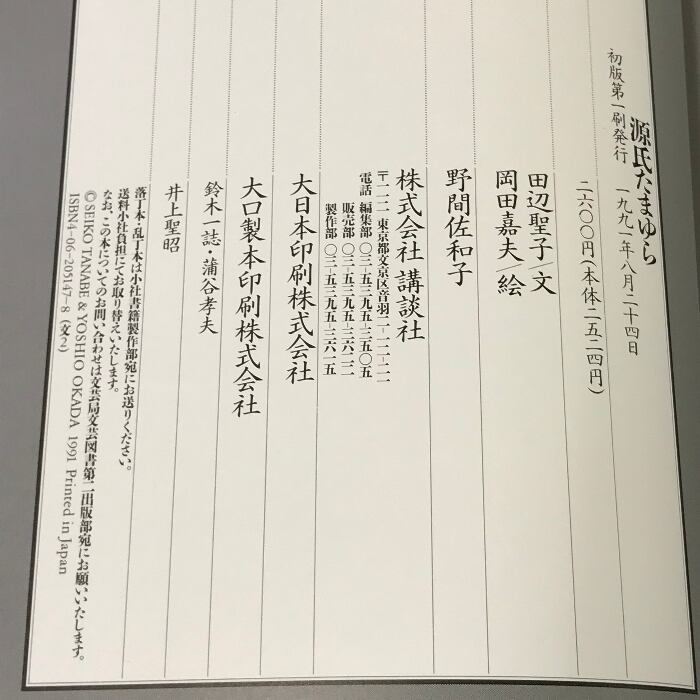 源氏たまゆら
初版第一刷発行 一九九一年八月二十四日
二六〇〇円(本体二五二四円)
田辺聖子/文
岡田嘉夫/絵
野間佐和子
株式会社 講談社
〒一一二 東京都文京区音羽二-一二-二一
電話 編集部 〇三-五三九五-三五〇五
販売部 〇三-五三九五-三六二二
製作部 〇三-五三九五-三六一五
大日本印刷株式会社
大口製本印刷株式会社
鈴木一誌・蒲谷孝夫
井上聖昭
落丁本・乱丁本は小社書籍製作部宛にお送りください。
送料小社負担にてお取り替えいたします。
なお、この本についてのお問い合わせは文芸局文芸図書第二出版部宛にお願いいたします。
©SEIKO TANABE & YOSHIO OKADA 1991 Printed in Japan
ISBN4-06-205147-8 (文2)